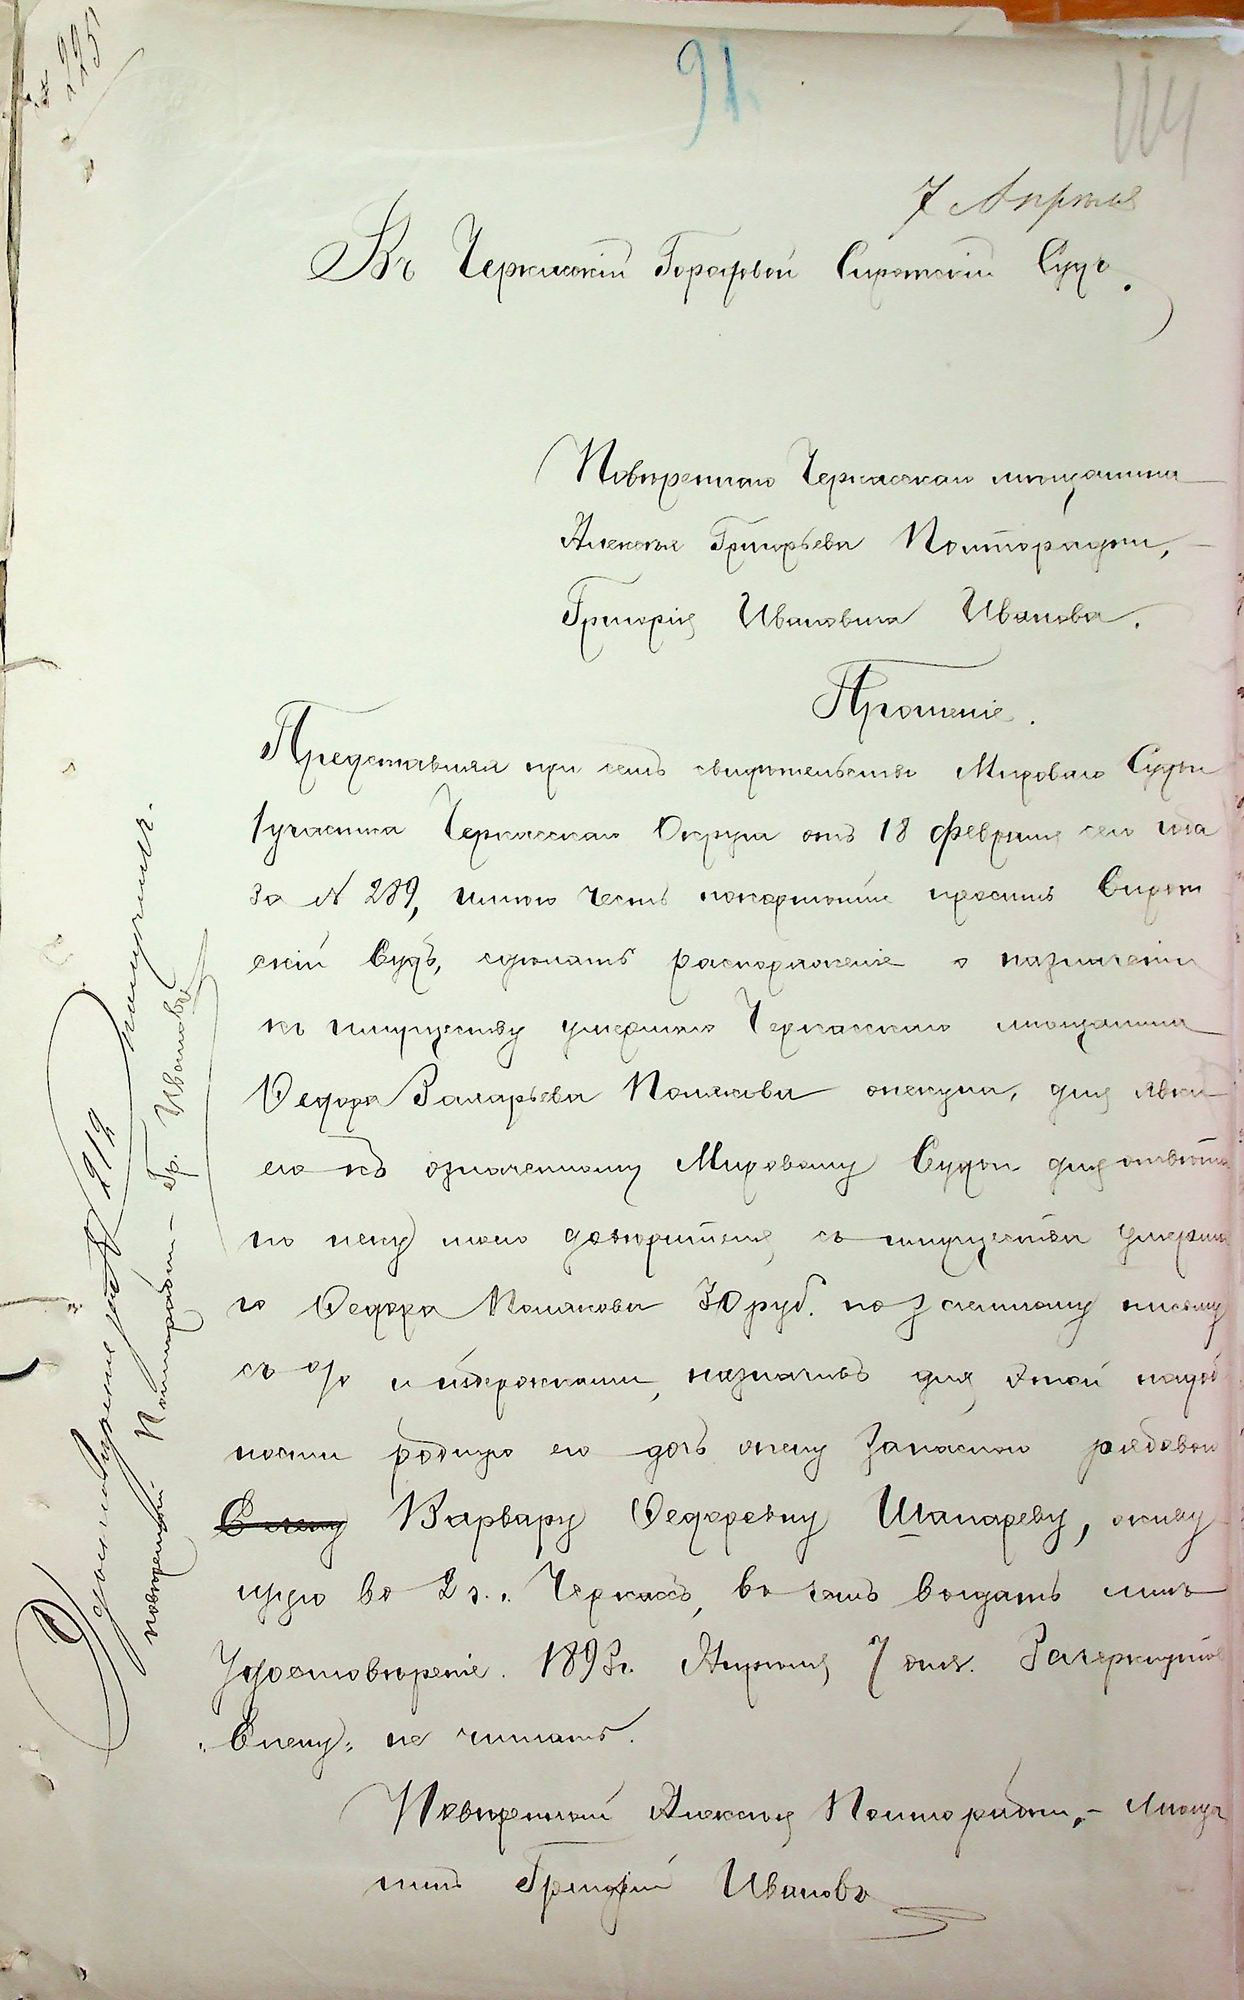 № 225
91.
114
7 Апрѣля
Въ Черкасскій Городовой Сиротскій Судъ.
Повѣреннаго Черкасскаго мѣщанина
Алексѣя Григорьева Полторадни,
Григорія Иванова Иванова.
Прошеніе.
Представляя при семъ свидѣтельство Мироваго Судьи
1 участка Черкасскаго Округа отъ 18 февраля сего года
за № 289, имѣю честь покорнѣйше просить Сирот
скій Судъ, сдѣлать распоряженіе о назначеніи
къ имуществу умершаго Черкасскаго мѣщанина
Ѳедора Захарьева Полякова опекуна, для явки
его къ означенному Мировому Судьѣ для отвѣта
по иску моего довѣрителя съ имущества умерша
го Ѳедора Полякова 30 руб. по заемному письму
съ % и издержками, назначивъ для этой надоб
ности родную его дочь жену запаснаго рядоваго
Елену Варвару Ѳедоровну Шапареву, живу
щую въ г. Черкасъ, въ чемъ выдать мнѣ
Удостовѣреніе. 1893 г. Апрѣля 7 дня. Зачеркнутое
„Елену" не читать.
Повѣренный Алексѣя Полторадни, – мѣща
нинъ Григорій Ивановъ
Удостовѣреніе за № 212 получилъ.
повѣренный Полторадни – Гр. Ивановъ